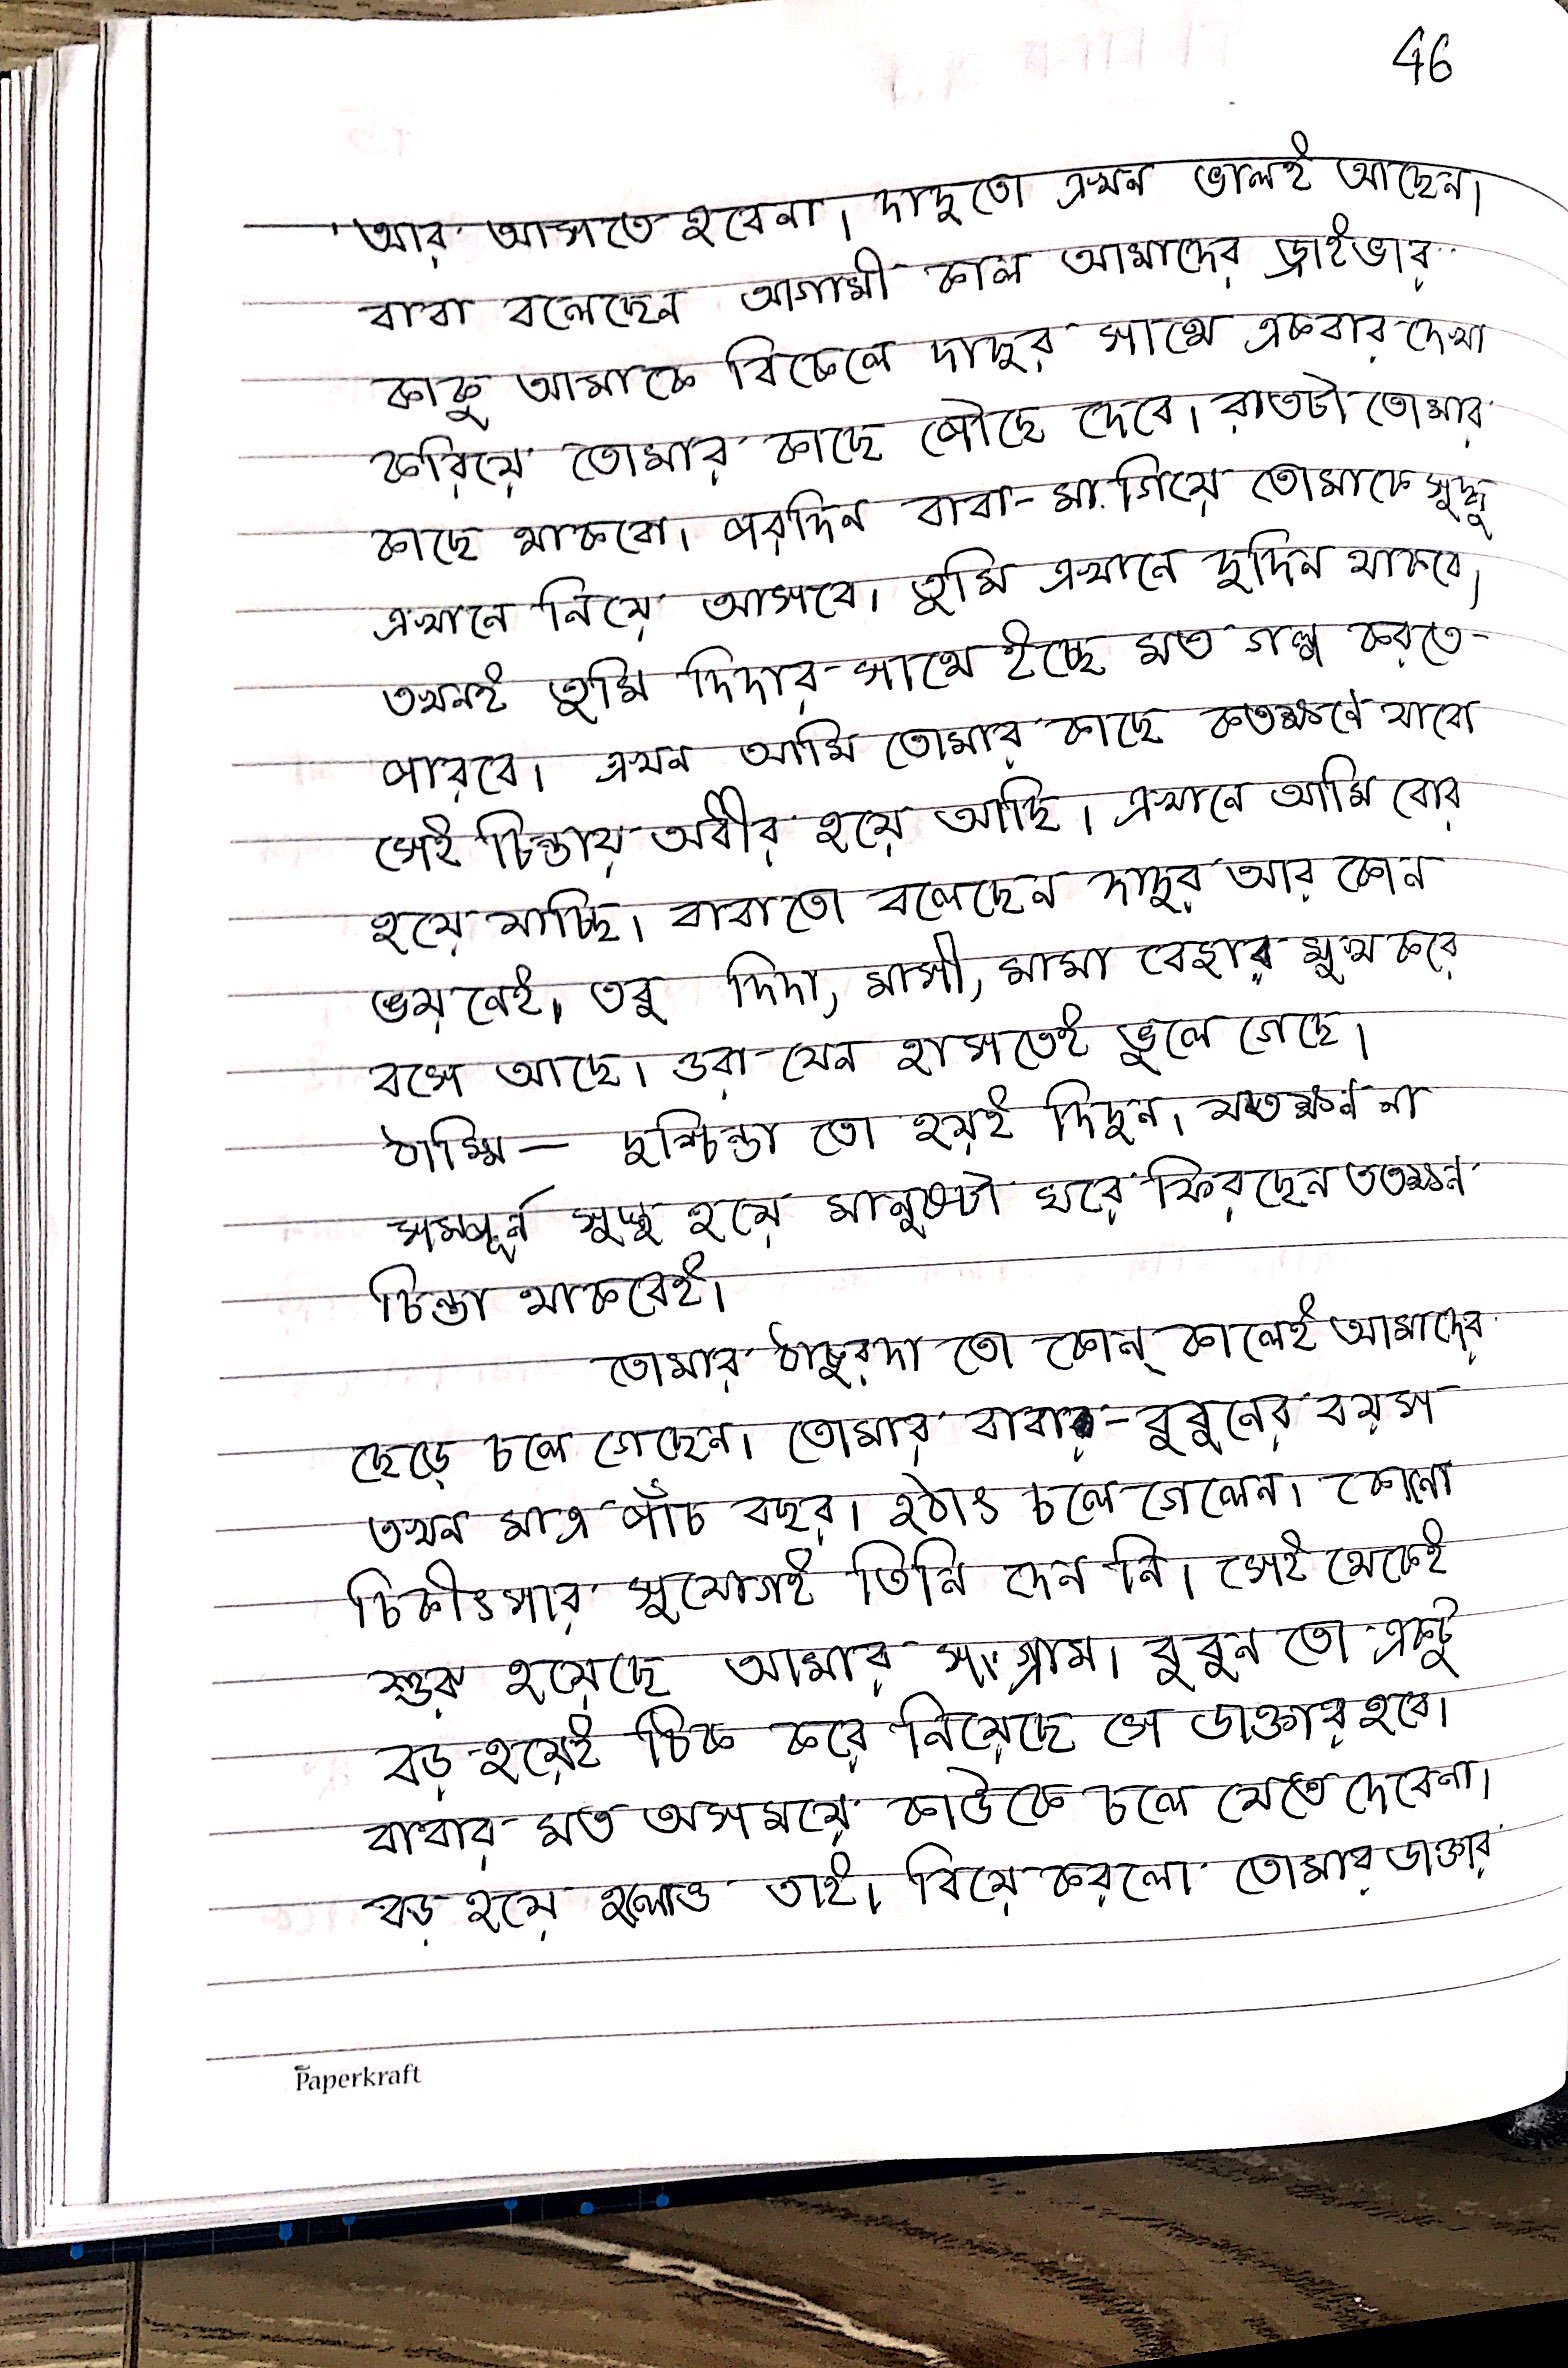 46
আর আসতে হবেনা। দাদুতো এখন ভালই আছেন।
বাবা বলেছেন আগামী কাল আমাদের ড্রাইভার
কাকু আমাকে বিকেলে দাদুর সাথে একবার দেখা
করিয়ে তোমার কাছে পৌছে দেবে। রাতটা তোমার
কাছে থাকবো। পরদিন বাবা-মা গিয়ে তোমাকে সুদ্ধু
এখানে নিয়ে আসবে। তুমি এখানে দুদিন থাকবে।
তখনই তুমি দিদার সাথে ইচ্ছে মত গল্প করতে
পারবে। এখন আমি তোমার কাছে কতক্ষনে যাবো
সেই চিন্তায় অধীর হয়ে আছি। এখানে আমি বোর
হয়ে যাচ্ছি। বাবাতো বলেছেন দাদুর আর কোন
ভয় নেই। তবু দিদা, মাসী, মামা বেহার মুখ করে
বসে আছে। ওরা যেন হাসতেই ভুলে গেছে।
ঠাম্মি — দুশ্চিন্তা তো হয়ই দিদুন। যতক্ষন না
সম্পূর্ন সুস্থ হয়ে মানুষটা ঘরে ফিরছেন ততক্ষন
চিন্তা থাকবেই।
তোমার ঠাকুরদা তো কোন্ কালেই আমাদের
ছেড়ে চলে গেছেন। তোমার বাবার-বুবুনের বয়স
তখন মাত্র পাঁচ বছর। হঠাৎ চলে গেলেন। কোনো
চিকীৎসার সুযোগই তিনি দেন নি। সেই থেকেই
শুরু হয়েছে আমার সংগ্রাম। বুবুন তো একটু
বড় হয়েই ঠিক করে নিয়েছে সে ডাক্তার হবে।
বাবার মত অসময়ে কাউকে চলে যেতে দেবেনা।
বড় হয়ে হলোও তাই। বিয়ে করলো তোমার ডাক্তার
Paperkraft